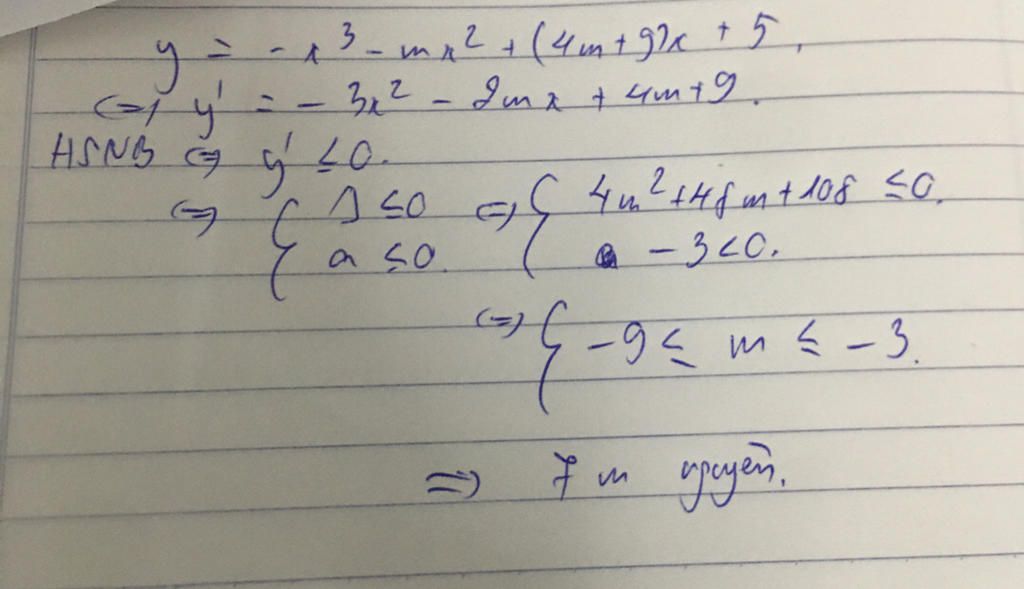 y = - x³ - mx² + (4m + 9)x + 5.
<=> y' = - 3x² - 2mx + 4m + 9.
HSNB <=> y' ≤ 0.
<=> { Δ ≤ 0 <=> { 4m² + 48m + 108 ≤ 0.
a ≤ 0. - 3 < 0.
<=> { - 9 ≤ m ≤ - 3.
=> 7 m nguyên.